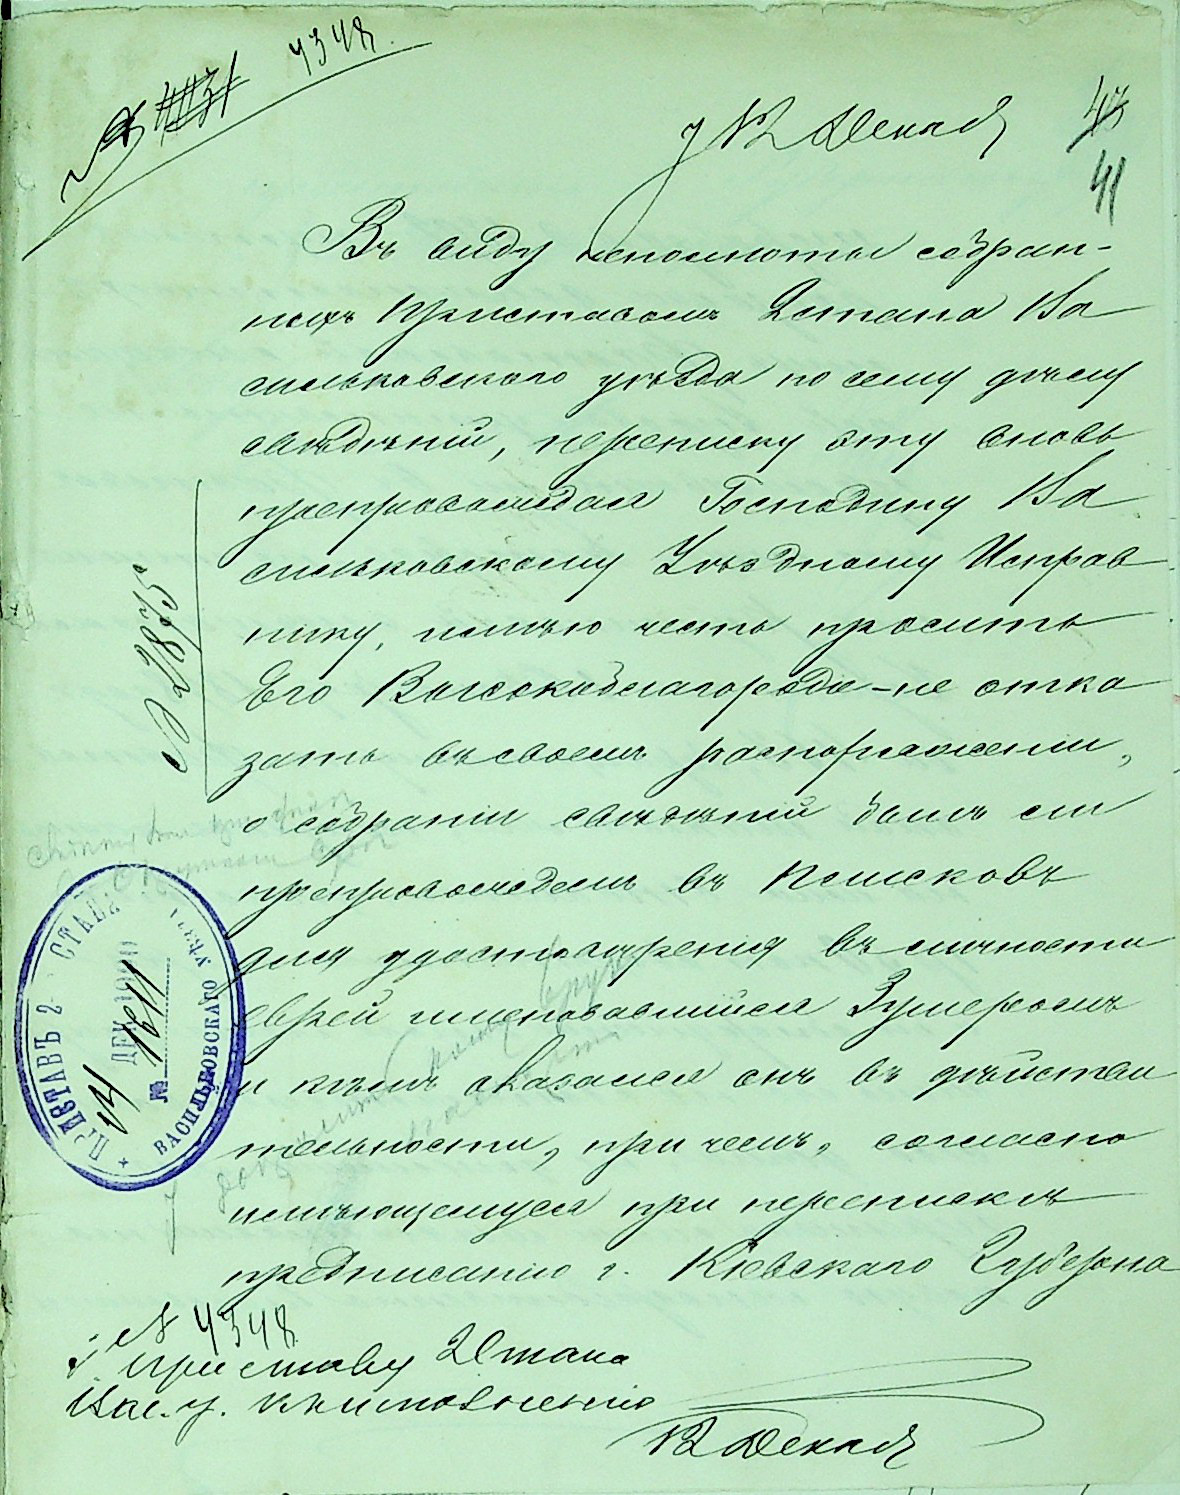 № 4131 4348.
12 Декабр
43
41
Въ виду неполноты собран-
ныхъ Приставомъ 2 стана Ва
сильковскаго уѣзда по сему дѣлу
свѣдѣній, переписку эту вновь
препровождая Господину Ва
сильковскому Уѣздному Исправ
нику, имѣю честь просить
Его Высокоблагородіе – не отка
зать въ своемъ распоряженіи,
о собраніи свѣдѣній былъ ли
препровождаемъ въ Поисковъ
для удостовѣренія въ личности
еврей именовавшійся Зумеромъ
и кѣмъ оказался онъ въ дѣйстви
тельности, при чемъ, согласно
имѣющемуся при перепискѣ
предписанію г. Кіевскаго Губерна
№
ПРИСТАВЪ 2 СТАНА
ДЕК
14
№ 1611
ВАСИЛЬКОВСКАГО УѢЗДА
№ 4348
Приставу 2 Стана
Вас. у. къ исполненію
12 Декабр